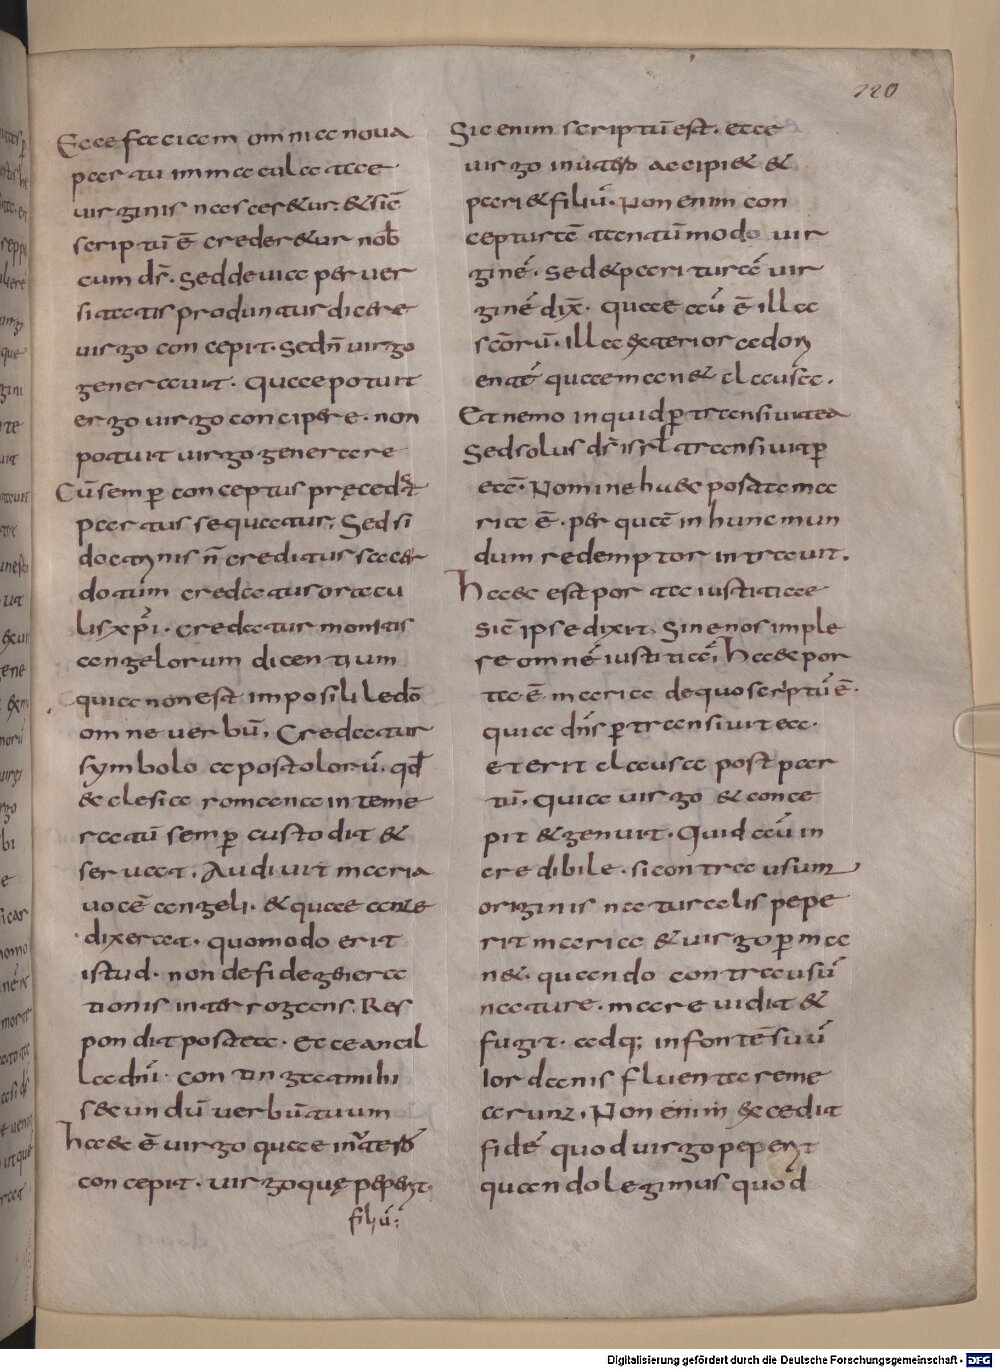 120
Ecce faciam omnia noua
partu immaculatae
uirginis nascer&ur. &sic̄
scriptū ē creder&ur nob̄
cum dr̄. Sed de uia peruer
sitatis produntur dicere
uirgo concepit. Sed n̄ uirgo
generauit. Quae potuit
ergo uirgo concipere. non
potuit uirgo generare
Cū semp conceptus preced&
partus sequatur. Sed si
doctrinis n̄ creditur sacer
dotum credatur oracu
lis xp̄i. credatur monitis
angelorum dicentium
quia non est imposibile dō
omne uerbū. Credatur
symbolo apostolorū. qđ
ecclesia romana inteme
ratū semp custodit &
seruat. Audiuit maria
uocē angeli. & quae ante
dixerat. quomodo erit
istud. non de fide genera
tionis interrogans. Res
pondit postea. Ecce ancil
la dn̄i. contingat mihi
secundū uerbū tuum
Haec ē uirgo quae in utero
concepit. uirgo quę peperit
filiū:
Sic enim scriptū est. ecce
uirgo in utero accipi& &
pari& filiū. Non enim con
cepturā tantūmodo uir
ginē. Sed & parituram uir
ginē dix̄. Quae aū ē illa
scōrū. illa exterior ad ori
entē quae man& clausa.
Et nemo inquid ptransiuit ea
Sed solus ds̄ isrl̄ transiuit p
eā. Nomine haec posita ma
ria ē. per quā in hunc mun
dum redemptor intrauit.
Haec est porta iustitiae
sic̄ ipse dixit. Sine nos imple
re omnē iustitiā. Haec por
ta ē maria de quo scriptū ē.
quia dn̄s ptransiuit ea.
et erit clausa post par
tū. Quia uirgo & conce
pit & genuit. Quid aū in
credibile. si contra usum
originis naturalis pepe
rit maria & uirgo pma
n&. quando contra usū
nature. mare uidit &
fugit. adq; in fontē suū
iordanis fluenta reme
arunt. Non enim excedit
fidē quod uirgo peperit
quando legimus quod
Digitalisierung gefördert durch die Deutsche Forschungsgemeinschaft - DFG